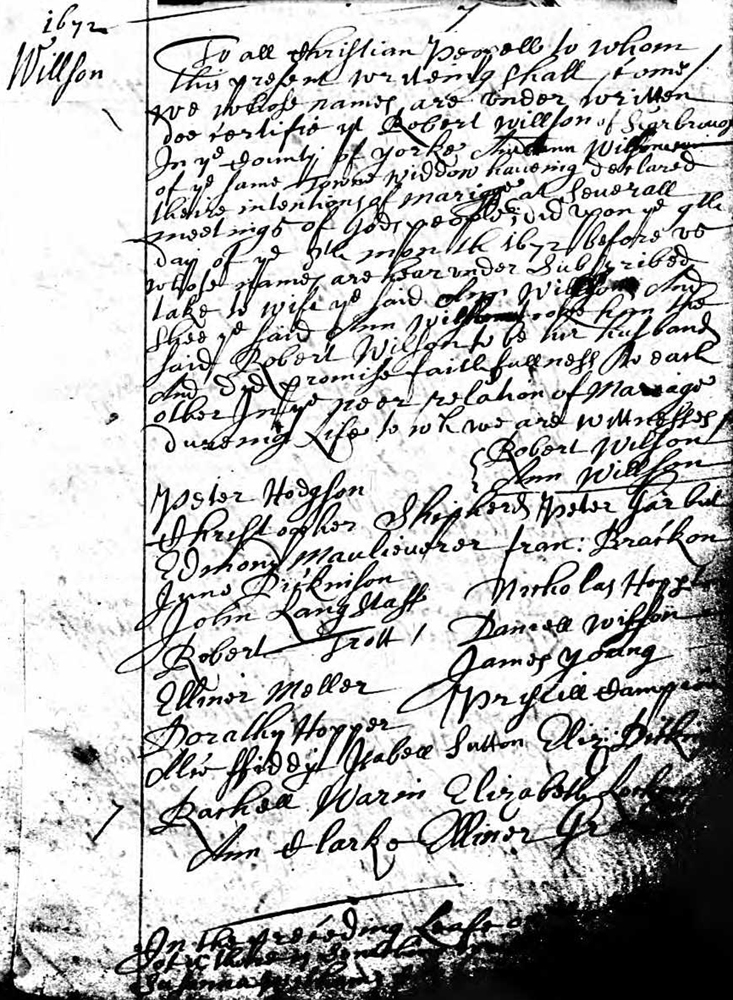 1672
Willson
To all Christian People to whom
this present writeing shall come
we whose names are under written
doe certifie yt Robert Willson of Scarbroug
In ye County of Yorke And Ann Willson
of ye same Towne Widdow haveing declared
theire intentions of Mariage at Severall
meetings of Gods people, did upon ye 9th
day of ye month 1672 before us
whose names are hearunder Subscribed
take to wife ye said Ann Willson And
Shee ye said Ann Willson tooke him the
said Robert Wilson to be hir husband
And did promise faithfullness to each
other In ye relation of Mariage
dureing Life to wh we are wittnesses
Robert Wilson
Ann Willson
Peter Hodgson
Christopher Shipherd Peter Garbut
Edmond Maulieverer Fran: Brackon
June Dickinson
Nicholas
John Langstaff
Robert Trott Daniell Wilson
James Young
Ellinor Meller Priscill
Dorathy Hopper
Isabell Sutton Eliz:
Rachell Warin Elizabeth
Ann Clarke Ellinor
In the preceding Leafe